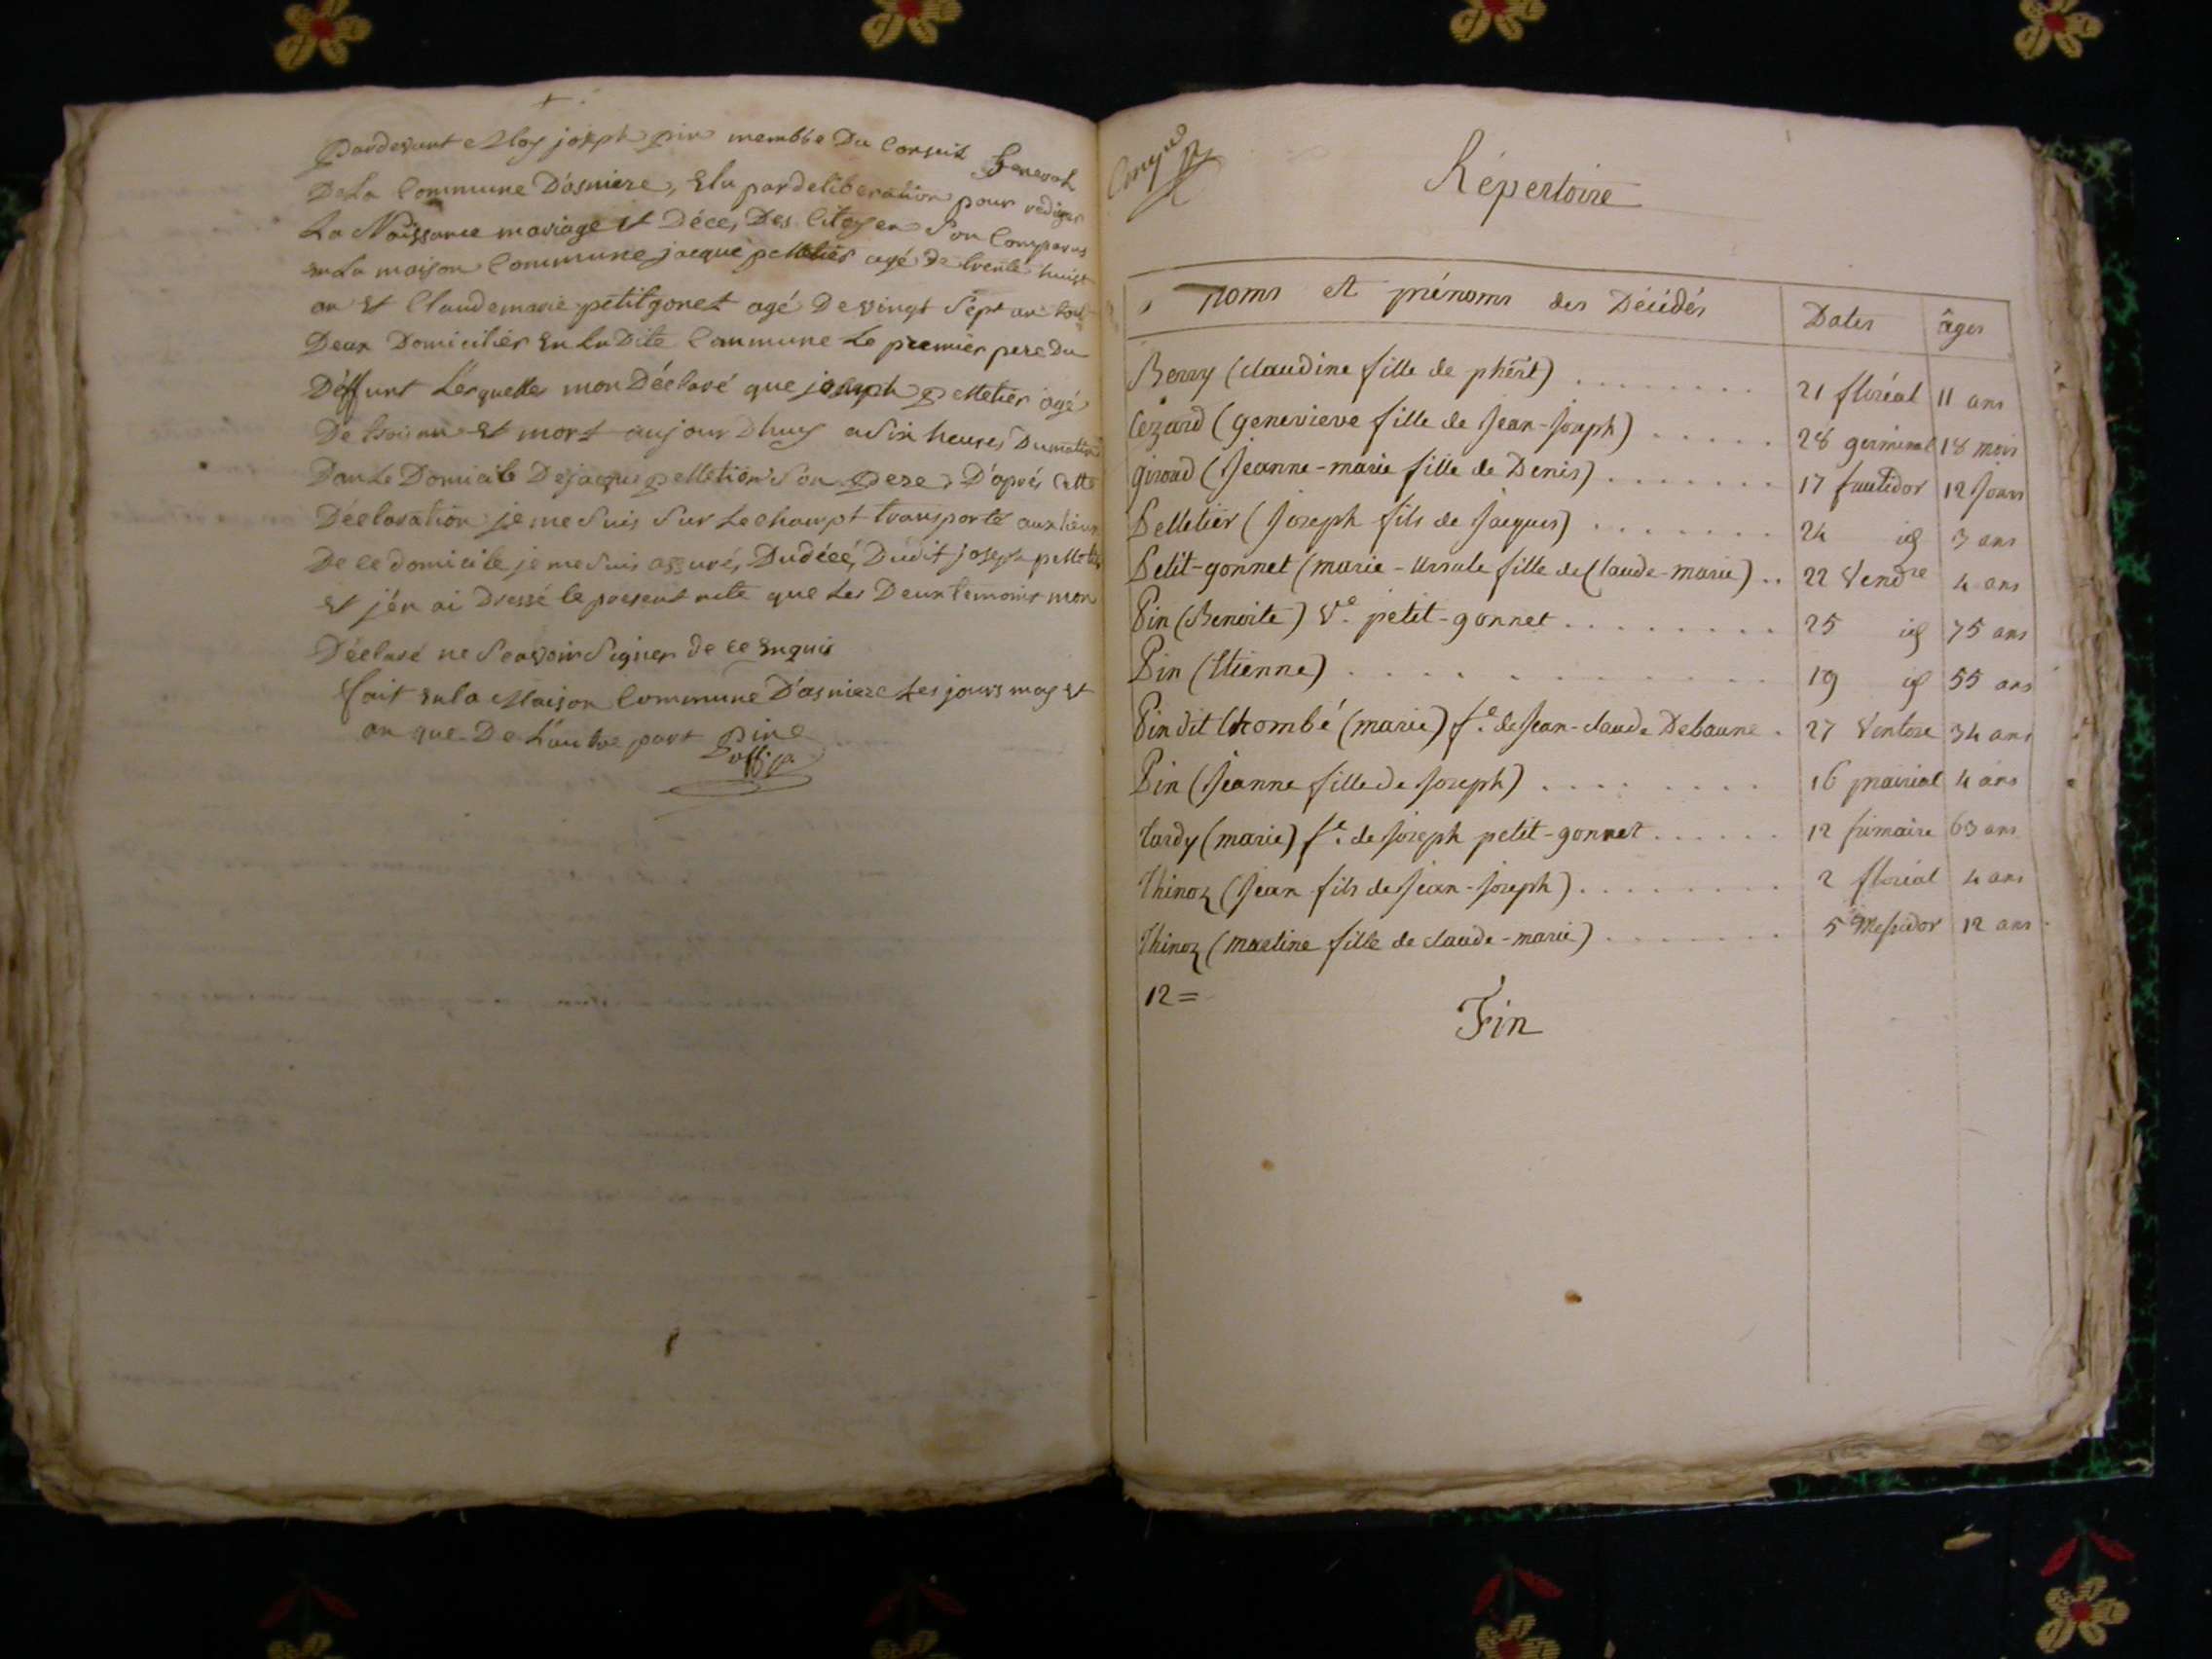 Pardevant Moy joseph pin membbe Du Conseil General
De La Commune D'asniere, Elu par deliberation pour rediger
La Naissance mariage et Décé, Des Citoyen Son Comparus
en La maison Commune jacque pelletier agé de trente huict
an et Claudemarie petitgonet agé De vingt Sept an tout
Deux Domicilier en La Dite Commune Le premier pere Du
Déffunt Lesquelles mon Déclaré que joseph pelletier agé
De troi an et mort aujour Dhuy a Six heures Du matin
Dan Le Domicile De jaque pelletier Son Pere, D'aprés Cette
Déclaration je me Suis Sur Le champt transporté aux lieux
De ce domicile je me Suis assuré, Du décé, Dudit joseph pelletier
et j'én ai Dressé le present acte que Les Deux temoins mon
Déclaré ne Scavoir Signer de ce Enquis
fait en la Maison Commune D'asniere Les jours moy et
an que De L'autre part pin
off. p.
Répertoire
Noms et prénoms des Décédés Dates âges
Berry (claudine fille de phért) ........ 21 floréal 11 ans
Cézard (genevieve fille de Jean-Joseph) ..... 28 germinal 18 mois
giroud (Jeanne-marie fille de Denis) ....... 17 fructidor 12 Jours
Pelletier (Joseph fils de Jacques) ....... 24 id 3 ans
Petit-gonnet (marie-Ursule fille de Claude-marie) .. 22 Vendre 4 ans
Pin (Benoite) Ve. petit-gonnet ........ 25 id 75 ans
Pin (Etienne) ............ 19 id 55 ans
Pin dit Chombé (marie) fe. de Jean-claude Debaune . 27 Ventose 34 ans
Pin (Jeanne fille de Joseph) ........ 16 prairial 4 ans
Tardy (marie) fe. de Joseph petit-gonnet ...... 12 frimaire 63 ans
Thinoz (Jean fils de Jean-Joseph) ........ 2 floréal 4 ans
Thinoz (marline fille de claude-marie) ....... 5 Messidor 12 ans
12 =
Fin